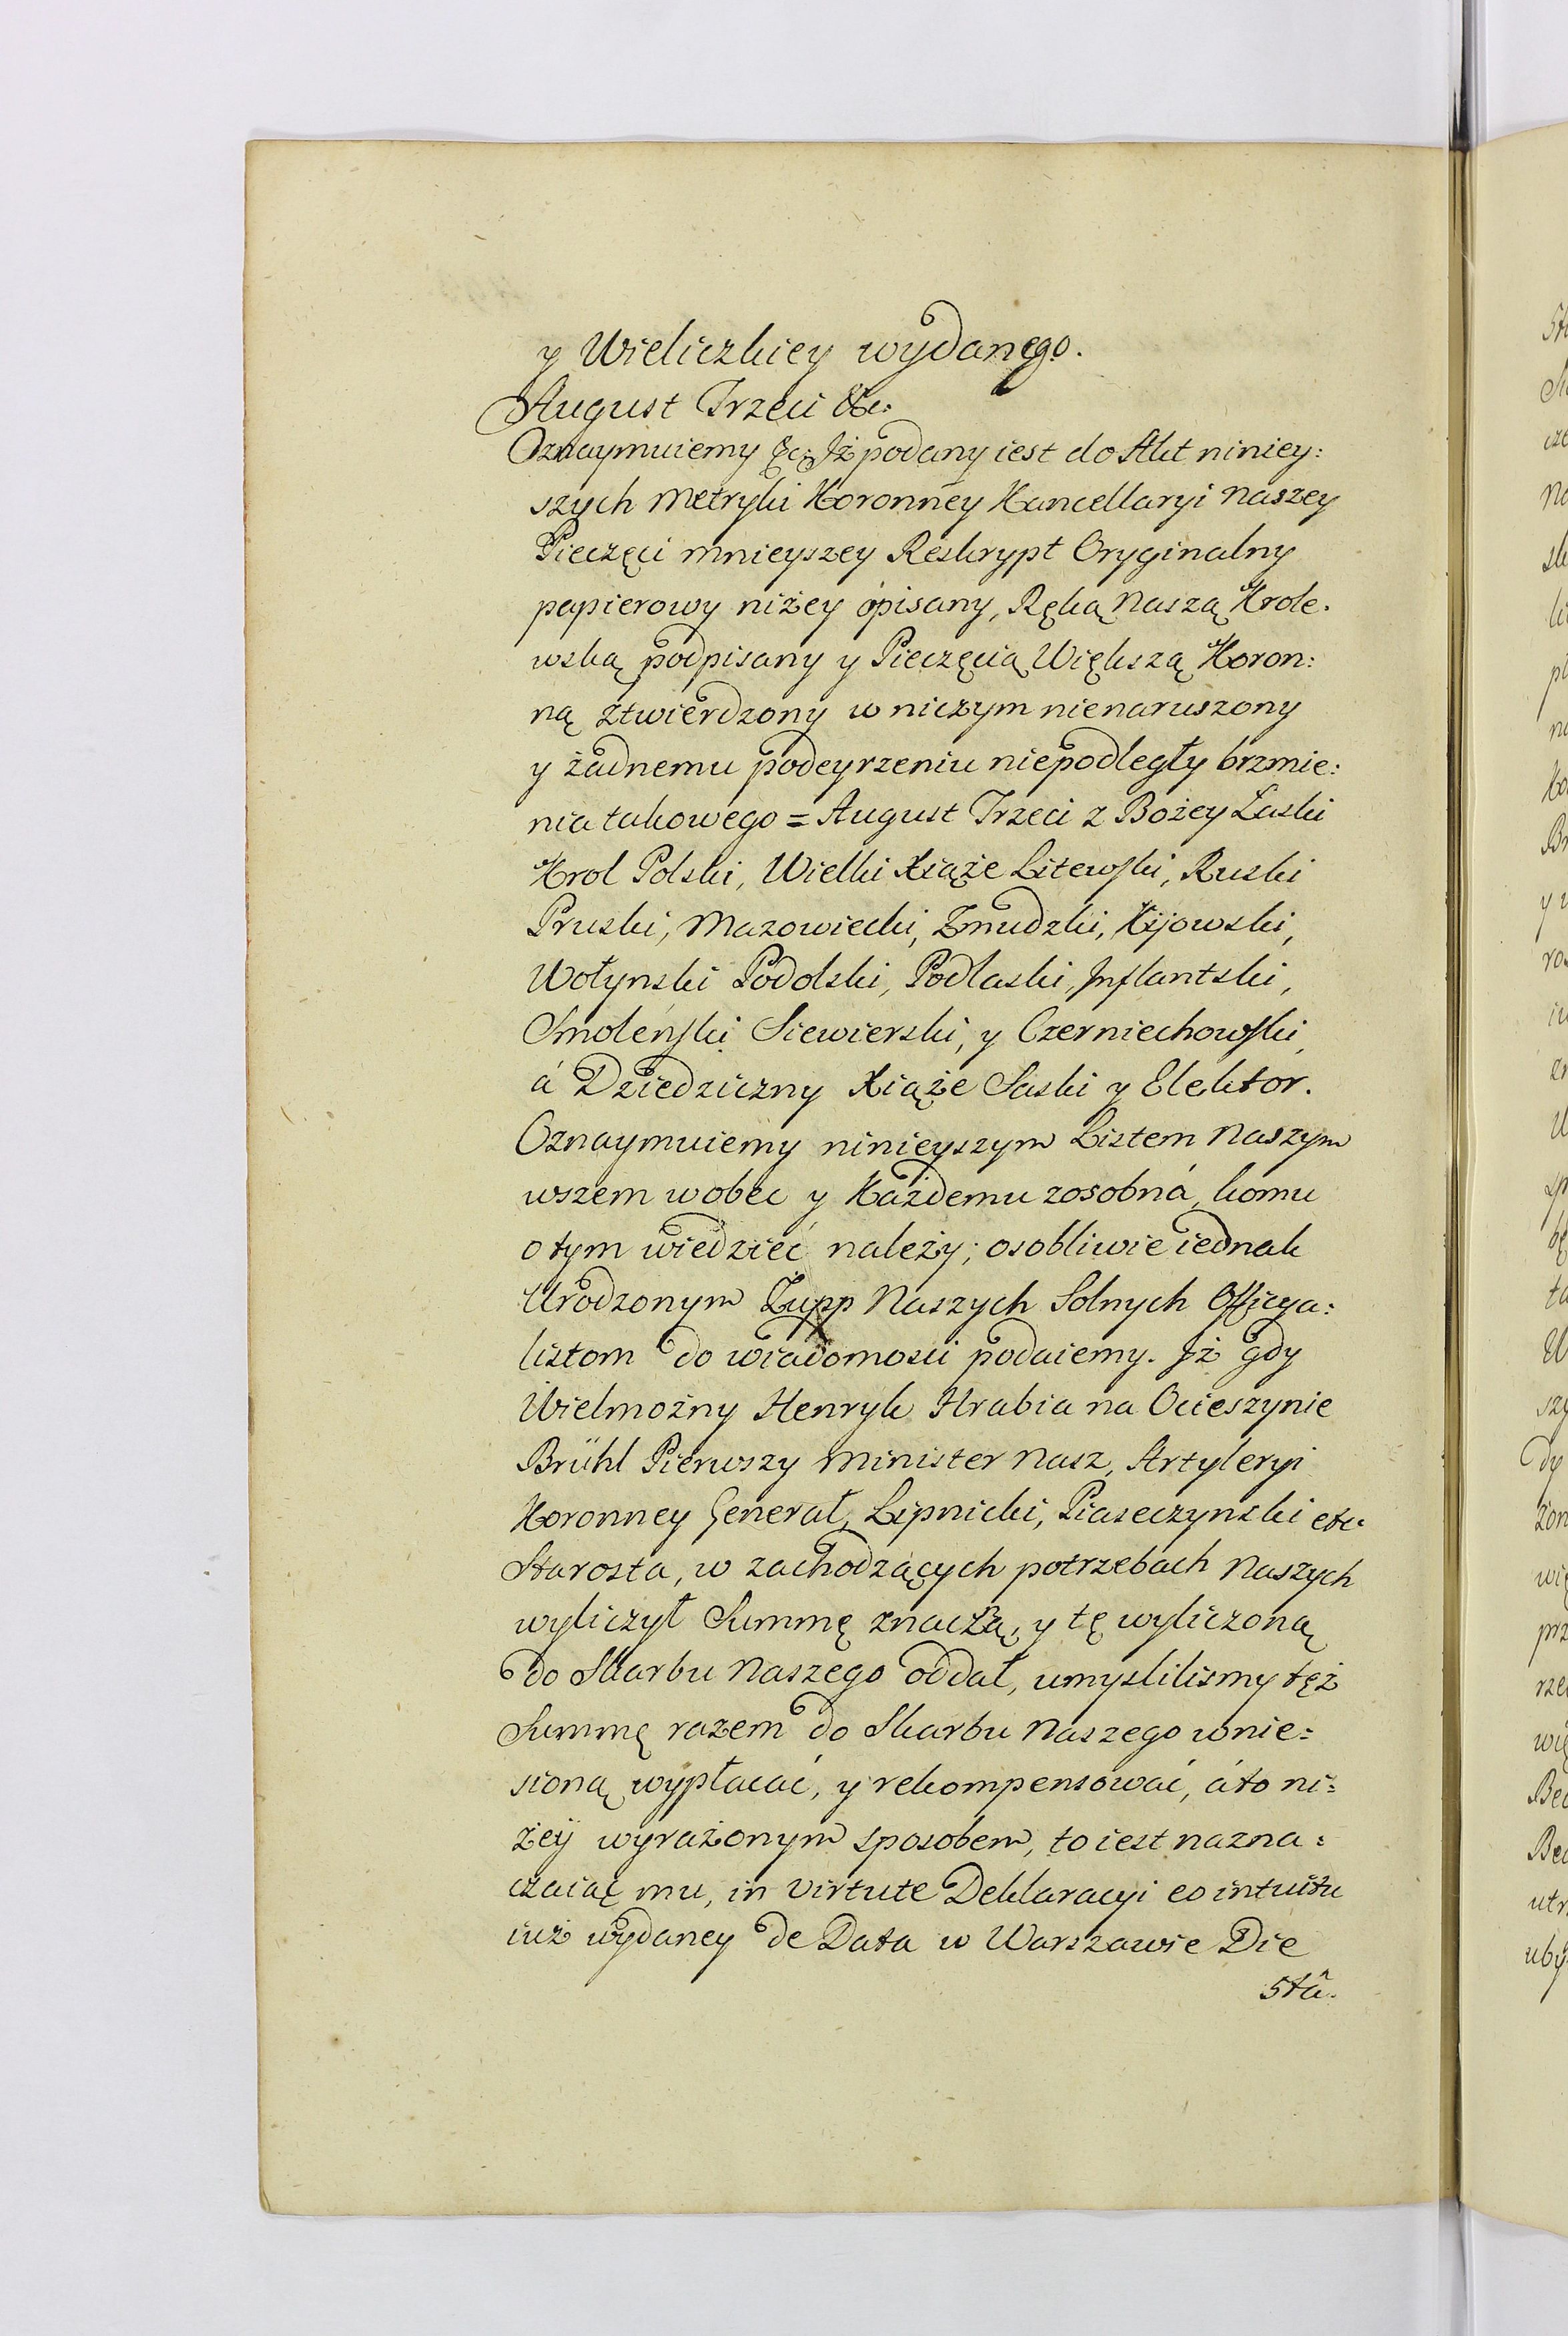 y Wieliczkiey wydanego.
August Trzeci &c:
Oznaymuiemy &c: Iż podany iest do Akt niniey:
szych Metryki Koronney Kancellaryi Naszey
Pieczęci mnieyszey Reskrypt Oryginalny
papierowy niżey opisany, Ręką Naszą Krole.
wską podpisany y Pieczęcią Większą Koron:
ną ztwierdzony w niczym nienaruszony
y żadnemu podeyrzeniu niepodległy brzmie:
nia takowego = August Trzeci z Bożey Łaski
Krol Polski, Wielki Xiąże Litewski, Ruski
Pruski, Mazowiecki, Zmudzki, Kijowski,
Wołynski Podolski, Podlaski, Inflantski,
Smoleński Siewierski, y Czerniechowski,
á Dziedziczny Xiąże Saski y Elektor.
Oznaymuiemy ninieyszym Listem Naszym
wszem wobec y Każdemu zosobná, komu
o tym wiedzieć należy; osobliwie iednak
Urodzonym Zupp Naszych Solnych Officya:
listom do wiadomosci podaiemy. Iż gdy
Wielmożny Henryk Hrabia na Ocieszynie
Brühl Pierwszy Minister Nasz, Artyleryi
Koronney Generał, Lipnicki, Piaseczynski etc
Starosta, w zachodzących potrzebach Naszych
wyliczył Summę znaczą, y tę wyliczoną
do Skarbu Naszego oddał, umyslilismy też
Summę razem do Skarbu Naszego wnie:
sioną wypłacać, y rekompensować, á to ni:
żey wyrażonym sposobem, to iest nazna:
czaiąc mu, in virtute Deklaracyi eo intuitu
iuż wydaney de Data w Warszawie Die
5tâ.